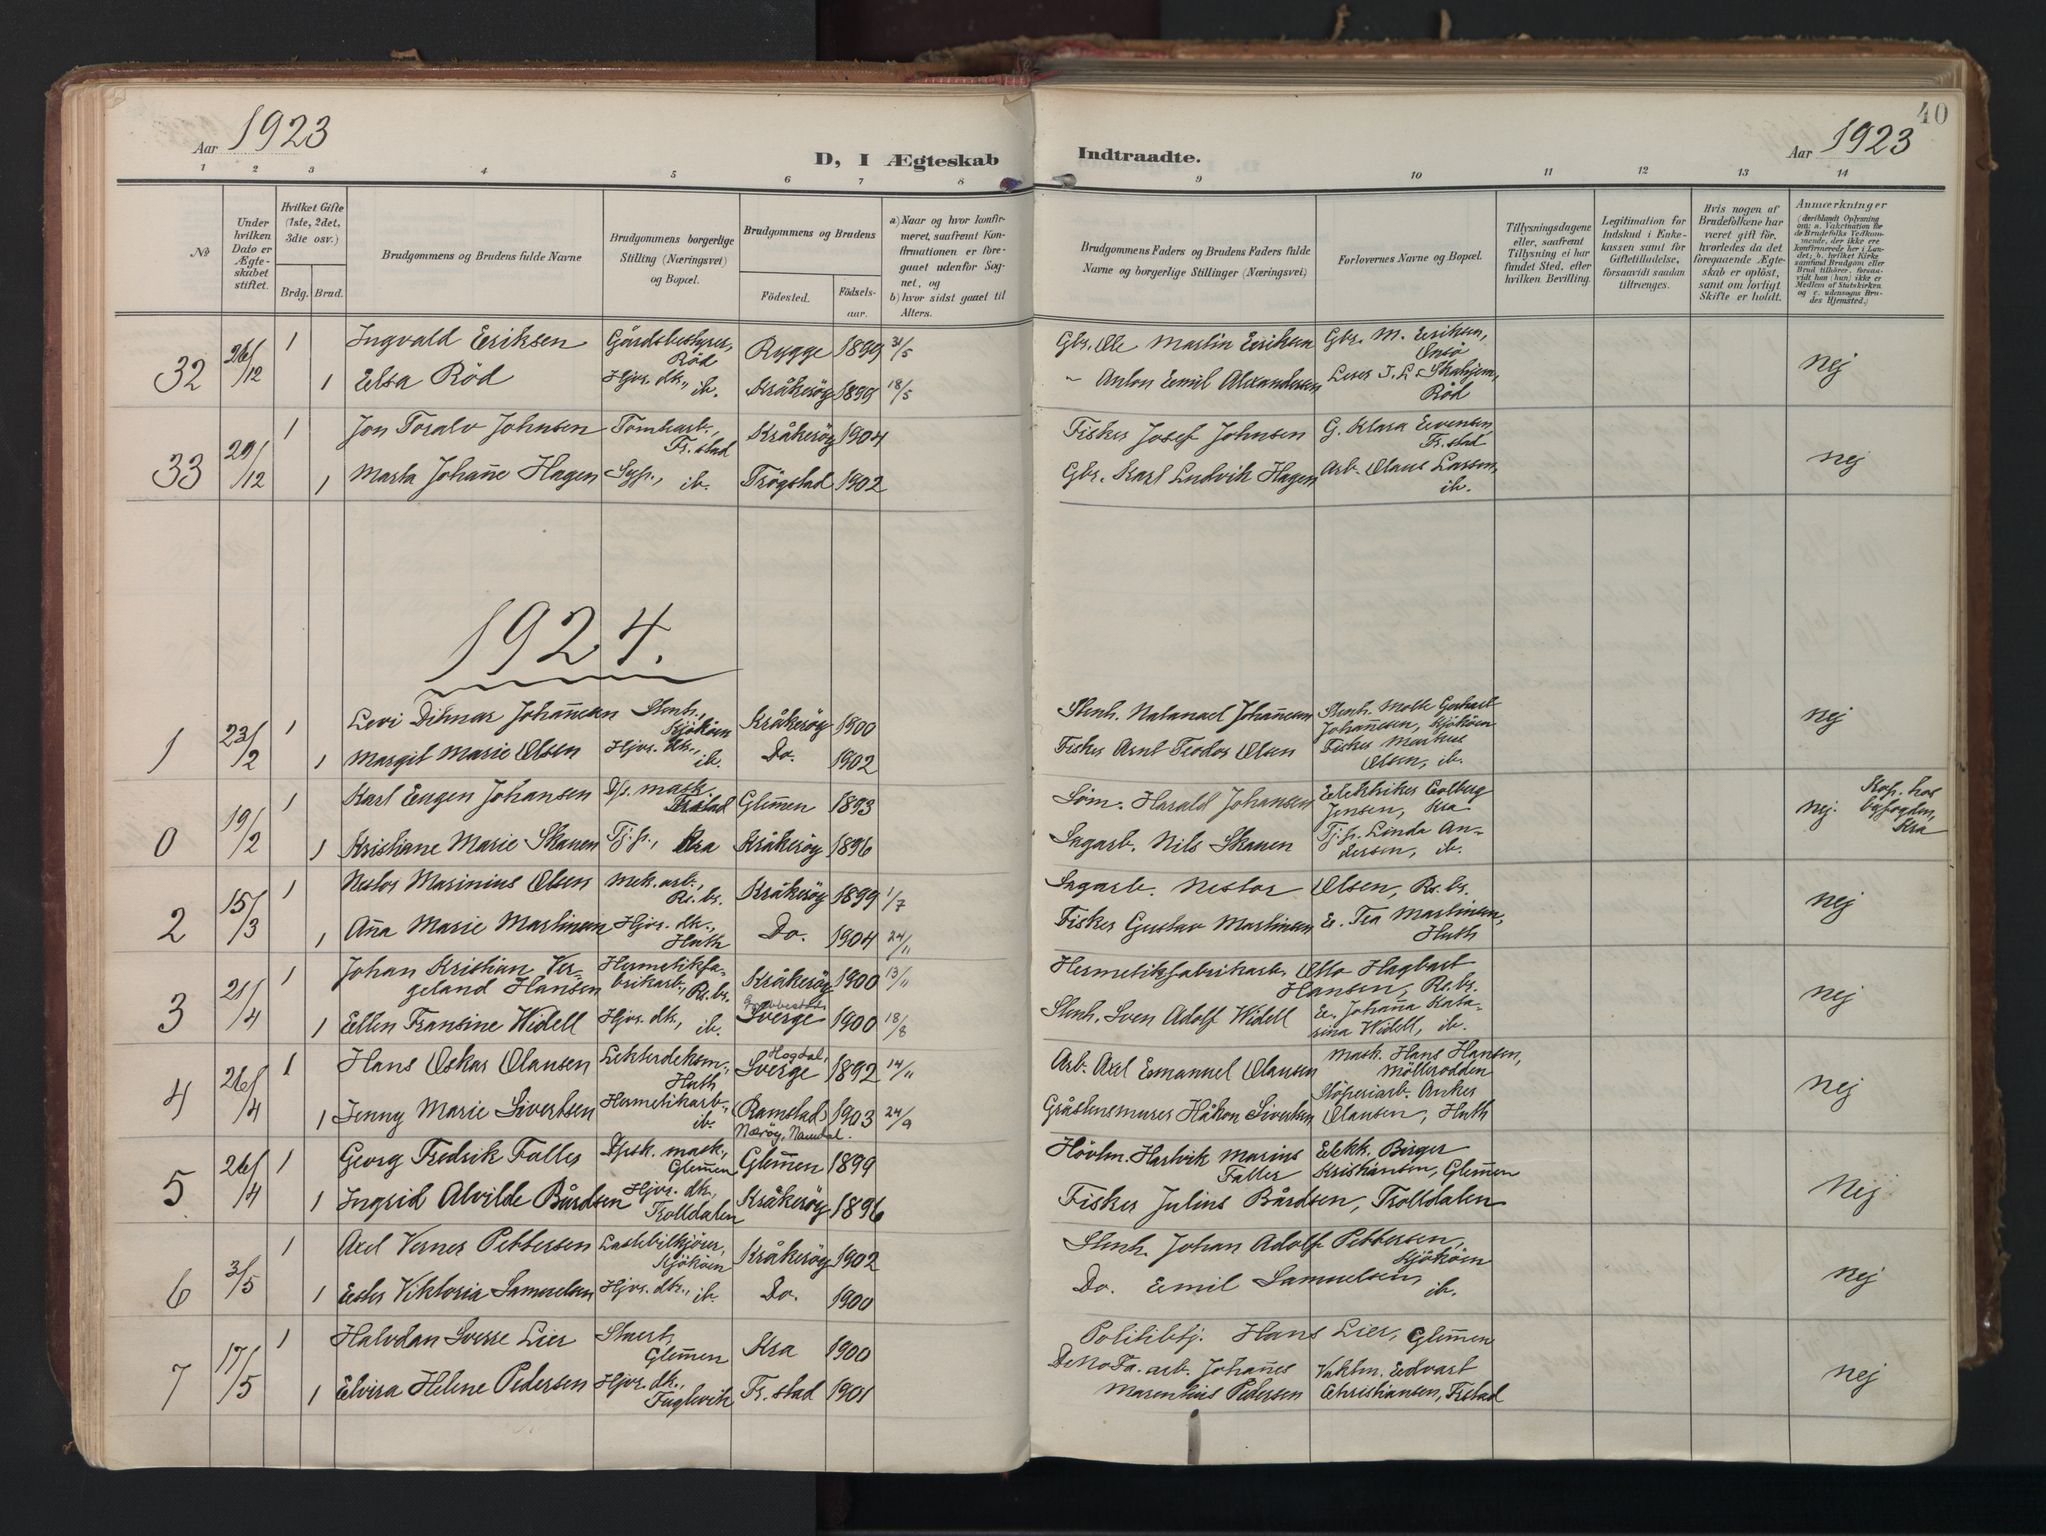 40
Aar 1923
Aar 1923
D, I Ægteskab Indtraadte.
1 2 3 4 5 6 7 8 9 10 11 12 13 14
No
Under
hvilken
Dato er
Ægte-
skabet
stiftet.
Hvilket Gifte
(1ste, 2det,
3die osv.)
Brdg. Brud.
Brudgommens og Brudens fulde Navne
Brudgommens borgerlige
Stilling (Næringsvei)
og Bopæl.
Brudgommens og Brudens
Fødested.
Fødsels-
aar.
a) Naar og hvor konfir-
meret, saafremt Kon-
firmationen er fore-
gaaet udenfor Sog-
net, og
b) hvor sidst gaaet til
Alters.
Brudgommens Faders og Brudens Faders fulde
Navne og borgerlige Stillinger (Næringsvei)
Forlovernes Navne og Bopæl.
Tillysningsdagene
eller, saafremt
Tillysning ei har
fundet Sted, efter
hvilken Bevilling.
Legitimation for
Indskud i Enke-
kassen samt for
Giftetilladelse,
forsaavidt saadan
tiltrænges.
Hvis nogen af
Brudefolkene har
været gift før,
hvorledes da det
foregaaende Ægte-
skab er opløst,
samt om lovligt
Skifte er holdt.
Anmærkninger
(deriblandt Oplysning
om: a. Vakcination for
de Brudefolks Vedkom-
mende, der ikke ere
konfirmerede her i Lan-
det; b. hvilket Kirke-
samfund Brudgom eller
Brud tilhører, forsaa-
vidt han (hun) ikke er
Medlem af Statskirken
og c. udensogns Bru-
des Hjemsted.)
32 26/12 1 Ingvald Eriksen Gårdsbestyrer, Rød Rygge 1899 31/5 Gbr. Ole Martin Eriksen Gbr. M. Eriksen, Onsö nej
1 Elsa Röd Hjvr. dtr., ib. Kråkeröy 1899 18/5 " Anton Emil Alexandersen, Röd
33 29/12 1 Jon Toralv Johnsen Tomtarb., Fr.stad Kråkeröy 1904 Fisker Josef Johnsen G. Klara Evensen, Fr.stad nej
1 Marta Johanne Hagen Syp., ib. Trögstad 1902 Gbr. Karl Ludvik Hagen Arb. Olaus Larsen, ib.
1924.
1 23/2 1 Levi Ditmar Johannesen Stenh., Kjököen Kråkeröy 1900 Stenh. Natanael Johannesen Stenh. Molte Gerhart Johannesen, Kjököen nej
1 Margit Marie Olsen Hjvr. dtr., ib. Do. 1902 Fisker Arnt Teodor Olsen Fisker Markus Olsen, ib.
0 19/2 1 Karl Eugen Johansen Dp. mask. Frstad Glemmen 1893 Söm. Harald Johansen Elektriker Golberg Jensen, Kra nej. Kop. hos byfogden, Kra
1 Kristiane Marie Skauen Tj.p., Kra Kråkeröy 1896 Sagarb. Nils Skauen Tj.p. Linda Andersen, ib.
2 15/3 1 Nestor Marinius Olsen Mek. arb., Rs.br. Kråkeröy 1899 1/7 Sagarb. Nestor Olsen, Rs.br. nej
1 Anna Marie Martinsen Hjvr. dtr., Huth Do. 1904 24/11 Fisker Gustav Martinsen E. Tea Martinsen, Huth
3 21/4 1 Johan Kristian Vergeland Hansen Hermetikfabrikarb., Rs.br. Kråkeröy 1900 13/11 Hermetikfabrikarb. Otto Hagbart Hansen, Rs.br. nej
1 Ellen Fransine Widell Hjvr. dtr., ib. Grebbestad Sverge 1900 18/8 Stenh. Sven Adolf Widell E. Johanna Katarina Widell, ib.
4 26/4 1 Hans Oskar Olausen Lekterdeksm., Huth Hogdal, Sverge 1892 14/11 Arb. Axel Emanuel Olausen Mask. Hans Hansen, Mölleroddden nej
1 Jenny Marie Sivertsen Hermetikarb., ib. (Ramstad) Næröy, Namdal. 1903 24/9 Gråstensmurer Håkon Sivertsen Støperiarb. Anker Olausen, Huth
5 26/4 1 Georg Fredrik Faller Dpsk. mask., Glemmen Glemmen 1899 Hövlm. Hartvik Marius Faller Elekk. Birger Kristiansen, Glemmen nej
1 Ingrid Alvilde Bårdsen Hjvr. dtr., Trolldalen Kråkeröy 1896 Fisker Julius Bårdsen, Trolldalen
6 3/5 1 Axel Verner Pettersen Lastebilkjörer, Kjököen Kråkeröy 1902 Stenh. Johan Adolf Pettersen, Kjököen nej
1 Ester Viktoria Samuelsen Hjvr. dtr., ib. Do. 1900 Do. Emil Samuelsen, ib.
7 17/5 1 Halvdan Sverre Lier Stuert, Glemmen Kra 1900 Politibtj. Hans Lier, Glemmen nej
1 Elvira Helene Pedersen Hjvr. dtr., Fuglevik Fr.stad 1901 DeNoFa. arb. Johannes Marentius Pedersen Vaktm. Edvart Christiansen, Frstad